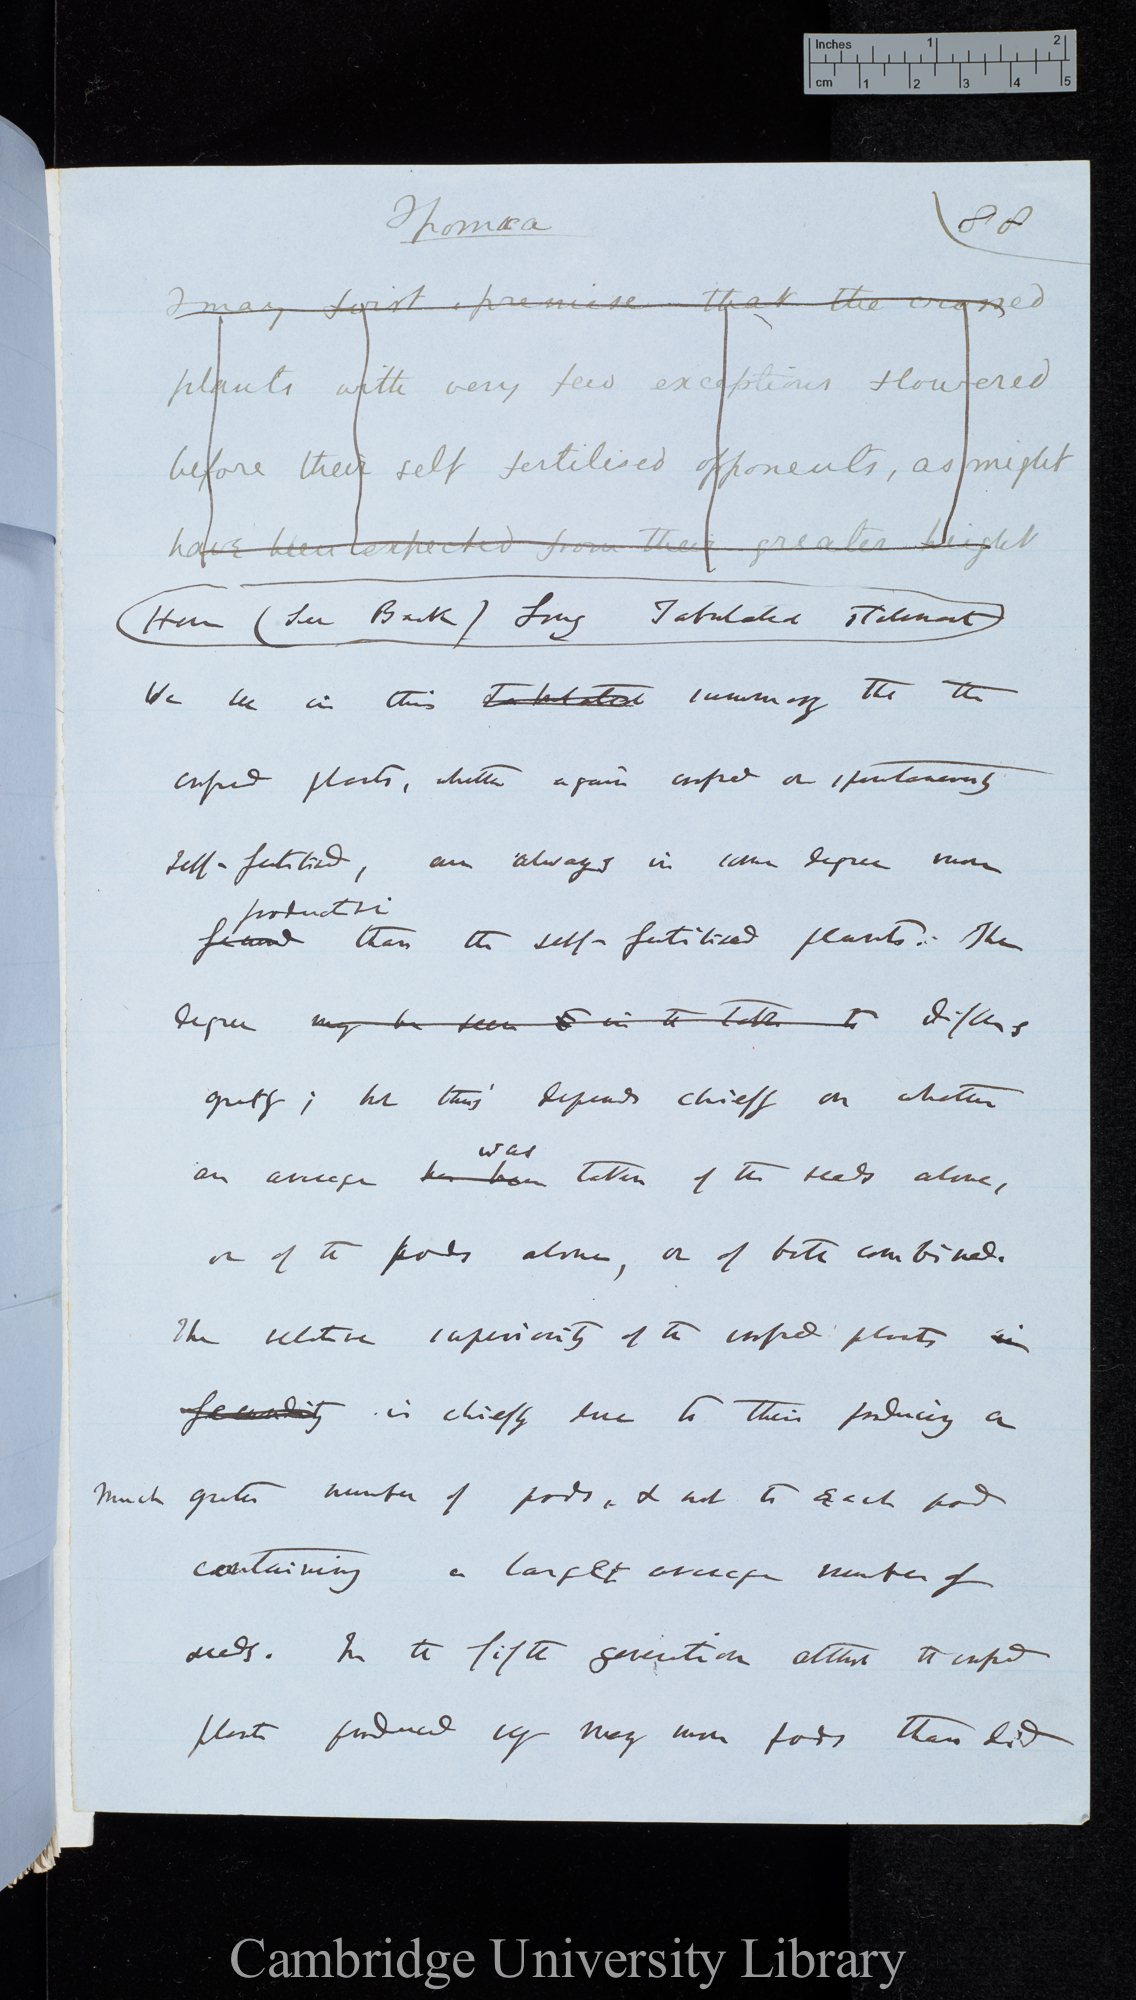 Inches 1 2
cm 1 2 3 4 5
Ipomœa
88
I may first premise that the crossed
plants with very few exceptions flowered
before their self fertilised opponents, as might
have been expected from their greater height
Here (See Back) Long Tabulated Statement
We see in this Tabulated summary the the
crossed plants, whether again crossed or spontaneously
self-fertilised, are always in some degree more
productive
fecund than the self-fertilised plants. The
degree may be seen in the table to differs
greatly; but this depends chiefly on whether
was
an average has been taken of the seeds alone,
or of the pods alone, or of both combined.
The relative superiority of the crossed plants in
fecundity is chiefly due to their producing a
much greater number of pods, & not to each pod
containing a larger average number of
seeds. In the fifth generation the crossed
plants produced very many more pods than did
Cambridge University Library